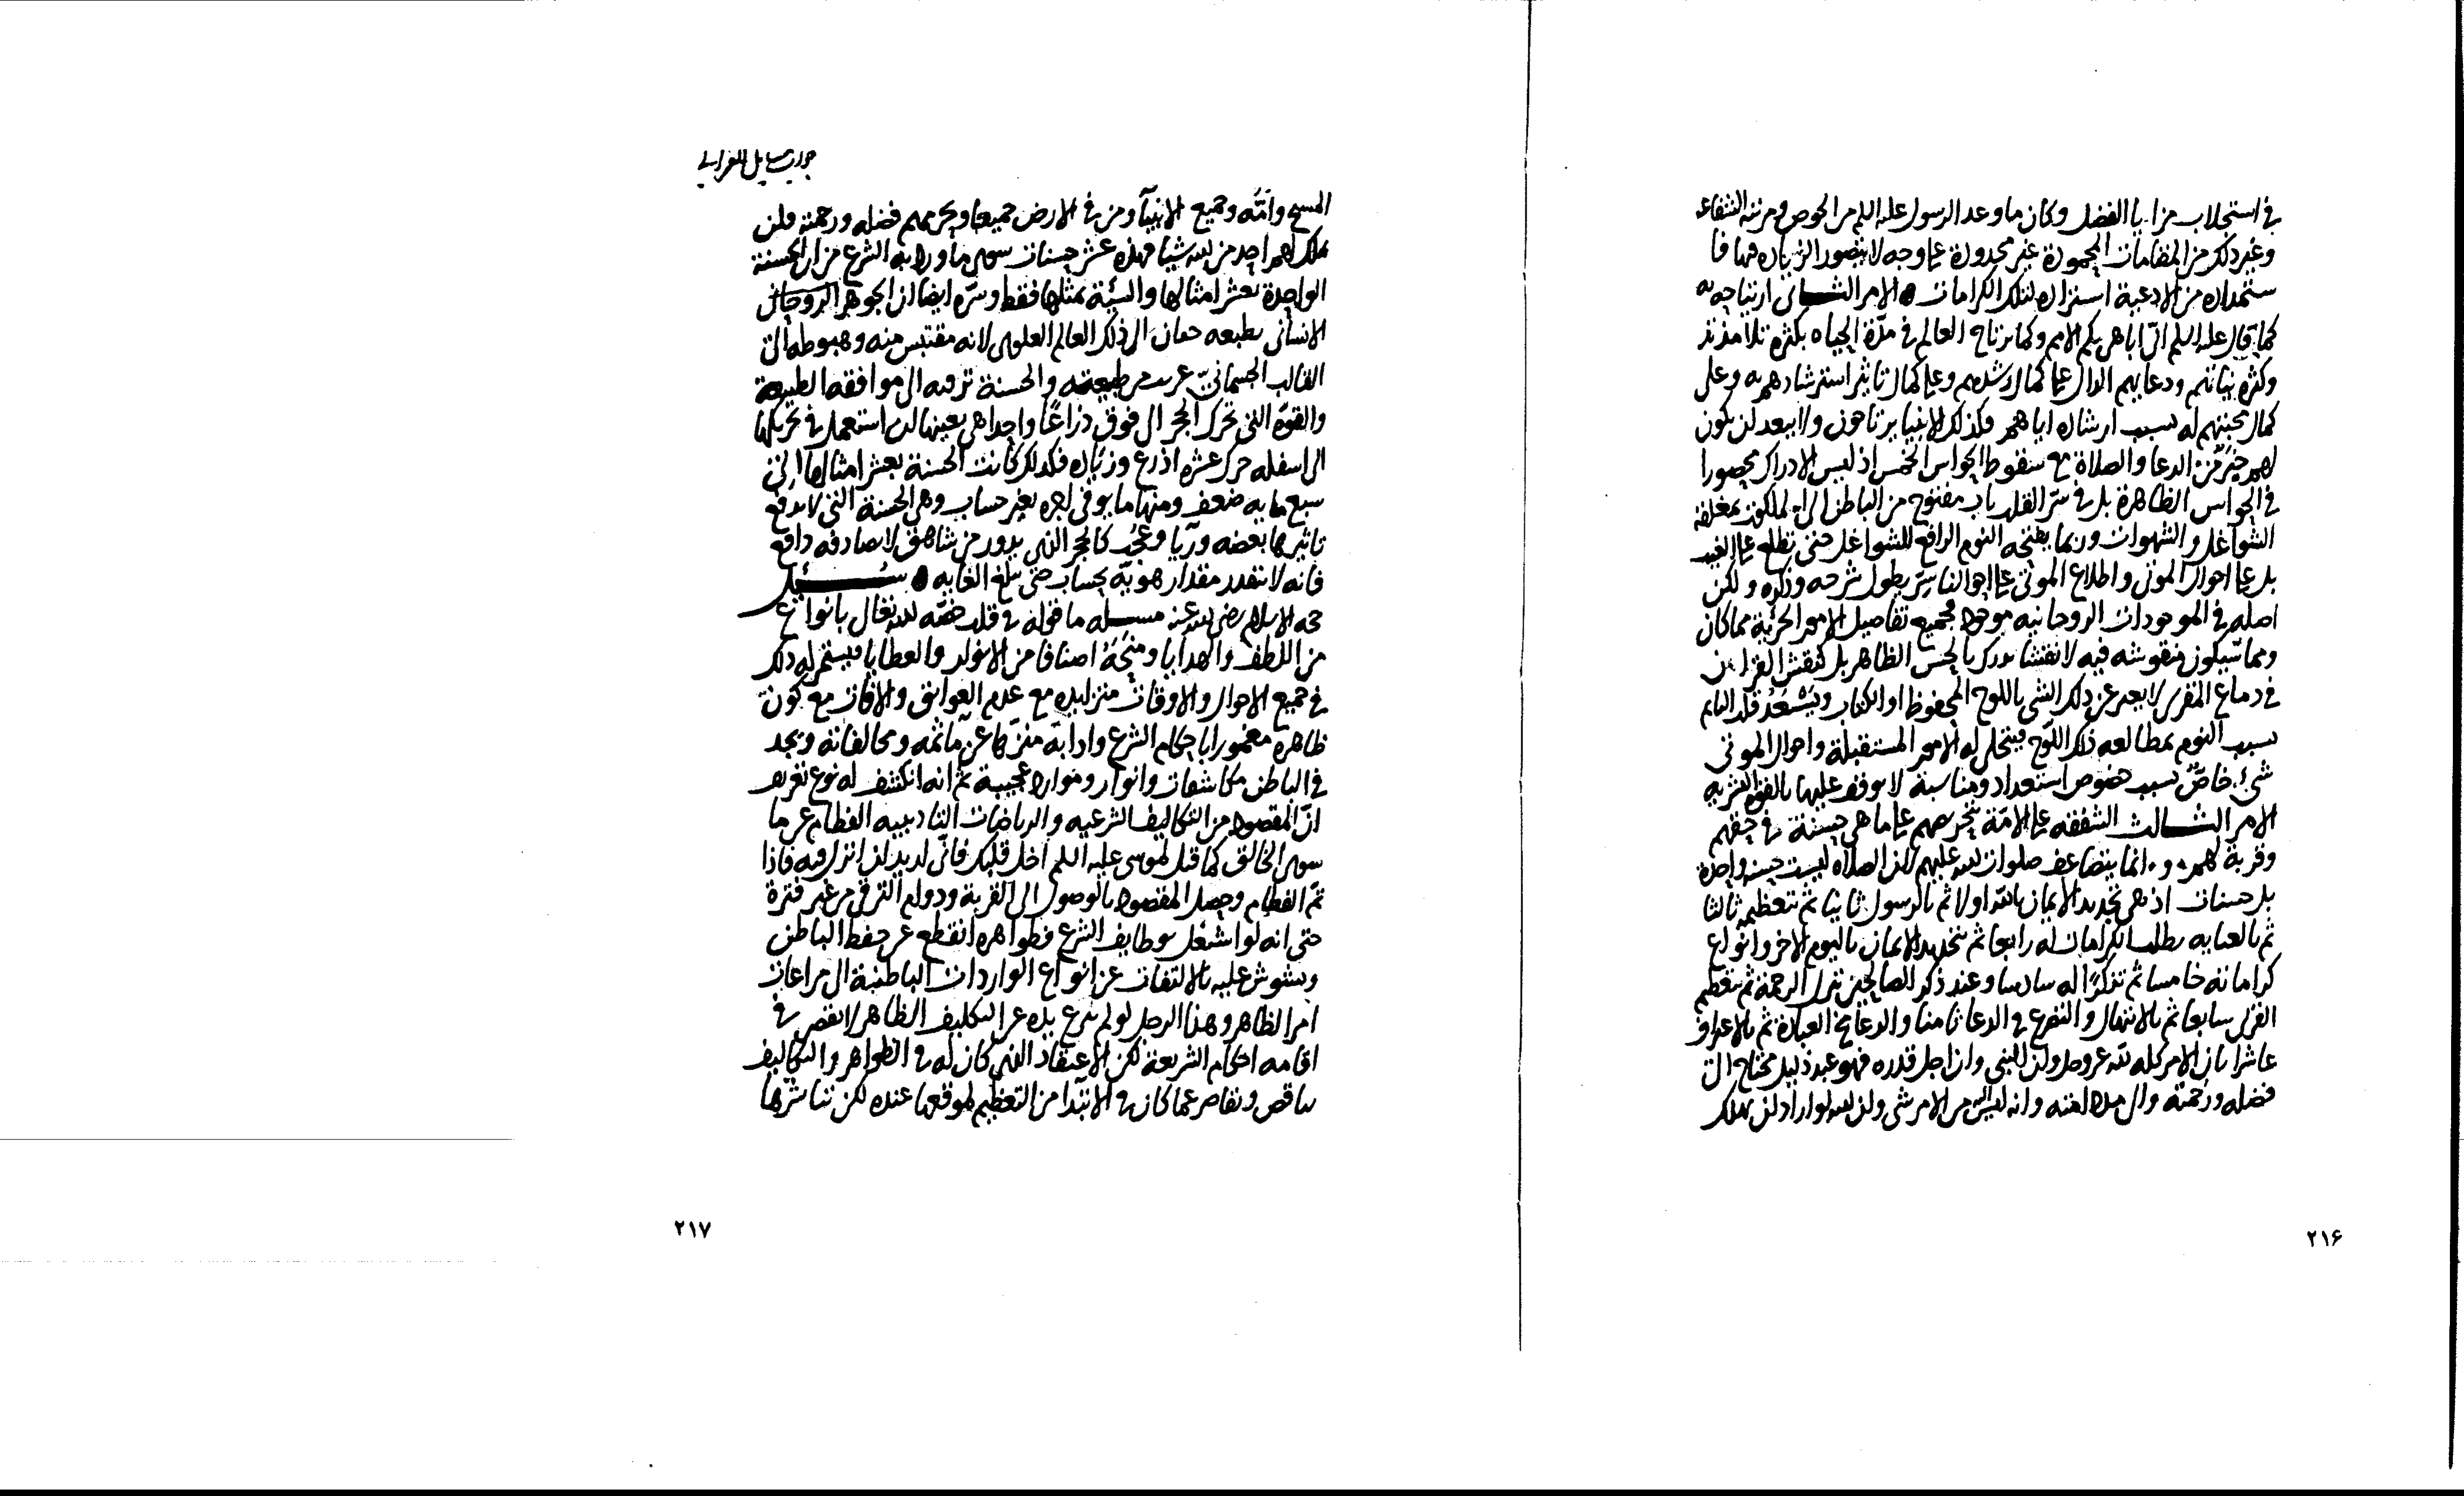 في استجلاب مزايا الفضل وكان ما وعد الرسول عليه السلم من الحوض ومرتبة الشفاعه
وغير ذلك من المقامات المحمودة غير محدودة على وجه لا يتصور الزياده فيها فا
ستمداده من الادعية استزاده لتلك الكرامات ه الامر الثـانى ارتياحه به
كما قال عليه السلم انى اباهى بكم الامم وكما يرتاح العالم في مدة الحياه بكثرة تلامذته
وكثرة ثنائهم ودعايهم الدال على كمال رشدهم وعلى كمال تاثير استرشادهم به وعلى
كمال محبتهم له بسبب ارشاده اياهم وكذلك الانبيا يرتاحون ولا يبعد ان يكون
لهم خبر من الدعا والصلاة مع سقوط الحواس الخمس اذ ليس الادراك محصورا
في الحواس الظاهرة بل في سر القلب باب مفتوح من الباطن الى الملكوت تغلقه
الشواغل والشهوات وربما يفتحه النوم الرافع للشواغل حتى تطلع على الغيب
بل على احوال الموتى واطلاع الموتى على احوالنا سر يطول شرحه وذكره ولكن
اصله في الموجودات الروحانيه موجود لجميع تفاصيل الامور الجزئية مما كان
ومما سيكون منقوشه فيه لا نقشا يدرك بالحس الظاهر بل كنقش القران
في دماغ المقرى لا يعبر عن ذلك الشي باللوح المحفوظ او الكتاب ويستعد قلب النايم
بسبب النوم بمطالعه ذلك اللوح فينجلى له الامور المستقبلة واحوال الموتى
شئ خاص بسبب خصوص استعداد ومناسبة لا يوقف عليها بالقوة البشريه
الامر الثـالث الشفقه على الامة بتحريصهم على ما هى حسنة في حقهم
وقربة لهم و انما يتضاعف صلوات الله عليهم لان الصلاه ليست حسنه واحدة
بل حسنات اذ هى تجديد الايمان بالله اولا ثم بالرسول ثانيا ثم تعظيمه ثالثا
ثم بالعنايه بطلب الكرامات له رابعا ثم تجديد الايمان باليوم الاخر وانواع
كراماته خامسا ثم تذكر اله سادسا وعند ذكر الصالحين تنزل الرحمة ثم بتعظيم
القربى سابعا ثم بالابتهال والتضرع في الدعا ثامنا والدعا مخ العبادة ثم بالاعتراف
عاشرا بان الامر كله لله عز وجل وان النبي وان اجل قدره فهو عبد ذليل محتاج الى
فضله ورحمته وانه ليس اليه من الامر شى وان الله لو اراد ان يهلك
جواب مسايل للغزالي
المسيح وامه وجميع الانبيآ ومن في الارض جميعا ويحرمهم فضله ورحمته فلن
يملك لهم احد من الله شيا فهذه عشر حسنات سوى ما ورد به الشرع من ان الحسنة
الواحدة بعشر امثالها والسيئة بمثلها فقط وسره ايضا ان الجوهر الروحانى
الانسانى بطبعه حنان الى ذلك العالم العلوى لانه مقتبس منه وهبوطه الى
القالب الجسمانى غريب من طبيعته والحسنة ترقيه الى موافقه الطبيعة
والقوة التى تحرك الحجر الى فوق ذراعا واحدا هى بعينها لو استعمل في تحريكها
الى اسفله حرك عشره اذرع وزياده فكذلك كانت الحسنة بعشر امثالها الى
سبع مايه ضعف ومنها ما يوفى اجره بغير حساب وهى الحسنة التى لا يدفع
تاثيرها بعضه وريا وعجب كالحجر الذي يدور من شاهق لا يصادفه دافع
فانه لا يتقدر مقدار هويه بحساب حتى يبلغ الغايه ه سـئـل
حجه الاسلام رضى الله عنه مسـله ما قوله في قلب خصه الله تعالى بانواع
من اللطف والهدايا ومنحه اصنافا من الانوار والعطايا فيستمر له ذلك
في جميع الاحوال والاوقات متزايده مع عدم العوايق والافات مع كون
ظاهره مغمورا باحكام الشرع وادابه منزها عن مآثمه ومخالفاته ويجد
في الباطن مكاشفات وانوار وموارد عجيبة ثم انه انكشف له نوع تعريف
ان المقصود من التكاليف الشرعيه والرياضات التاديبيه الفطام عن ما
سوى الخالق كما قيل لموسى عليه السلم اخل قلبك فانى اريد ان انزل فيه فاذا
تم الفطام وحصل المقصود بالوصول الى القربة ودوام الترقى من غير فترة
حتى انه لو اشتغل بوظايف الشرع وظواهره انقطع عن حفظ الباطن
وتشوش عليه بالالتفات عن انواع الواردات الباطنية الى مراعات
امر الظاهر وهذا الرجل لو لم ينزع يده عن التكليف الظاهر لا نقص في
اقامه احكام الشريعة لكن الاعتقاد الذي كان له في الظواهر والتكاليف
يناقص وتقاصر عما كان في الابتدآ من التعظيم لموقعها عنده لكن يباشرها
٢١٧
٢١۶